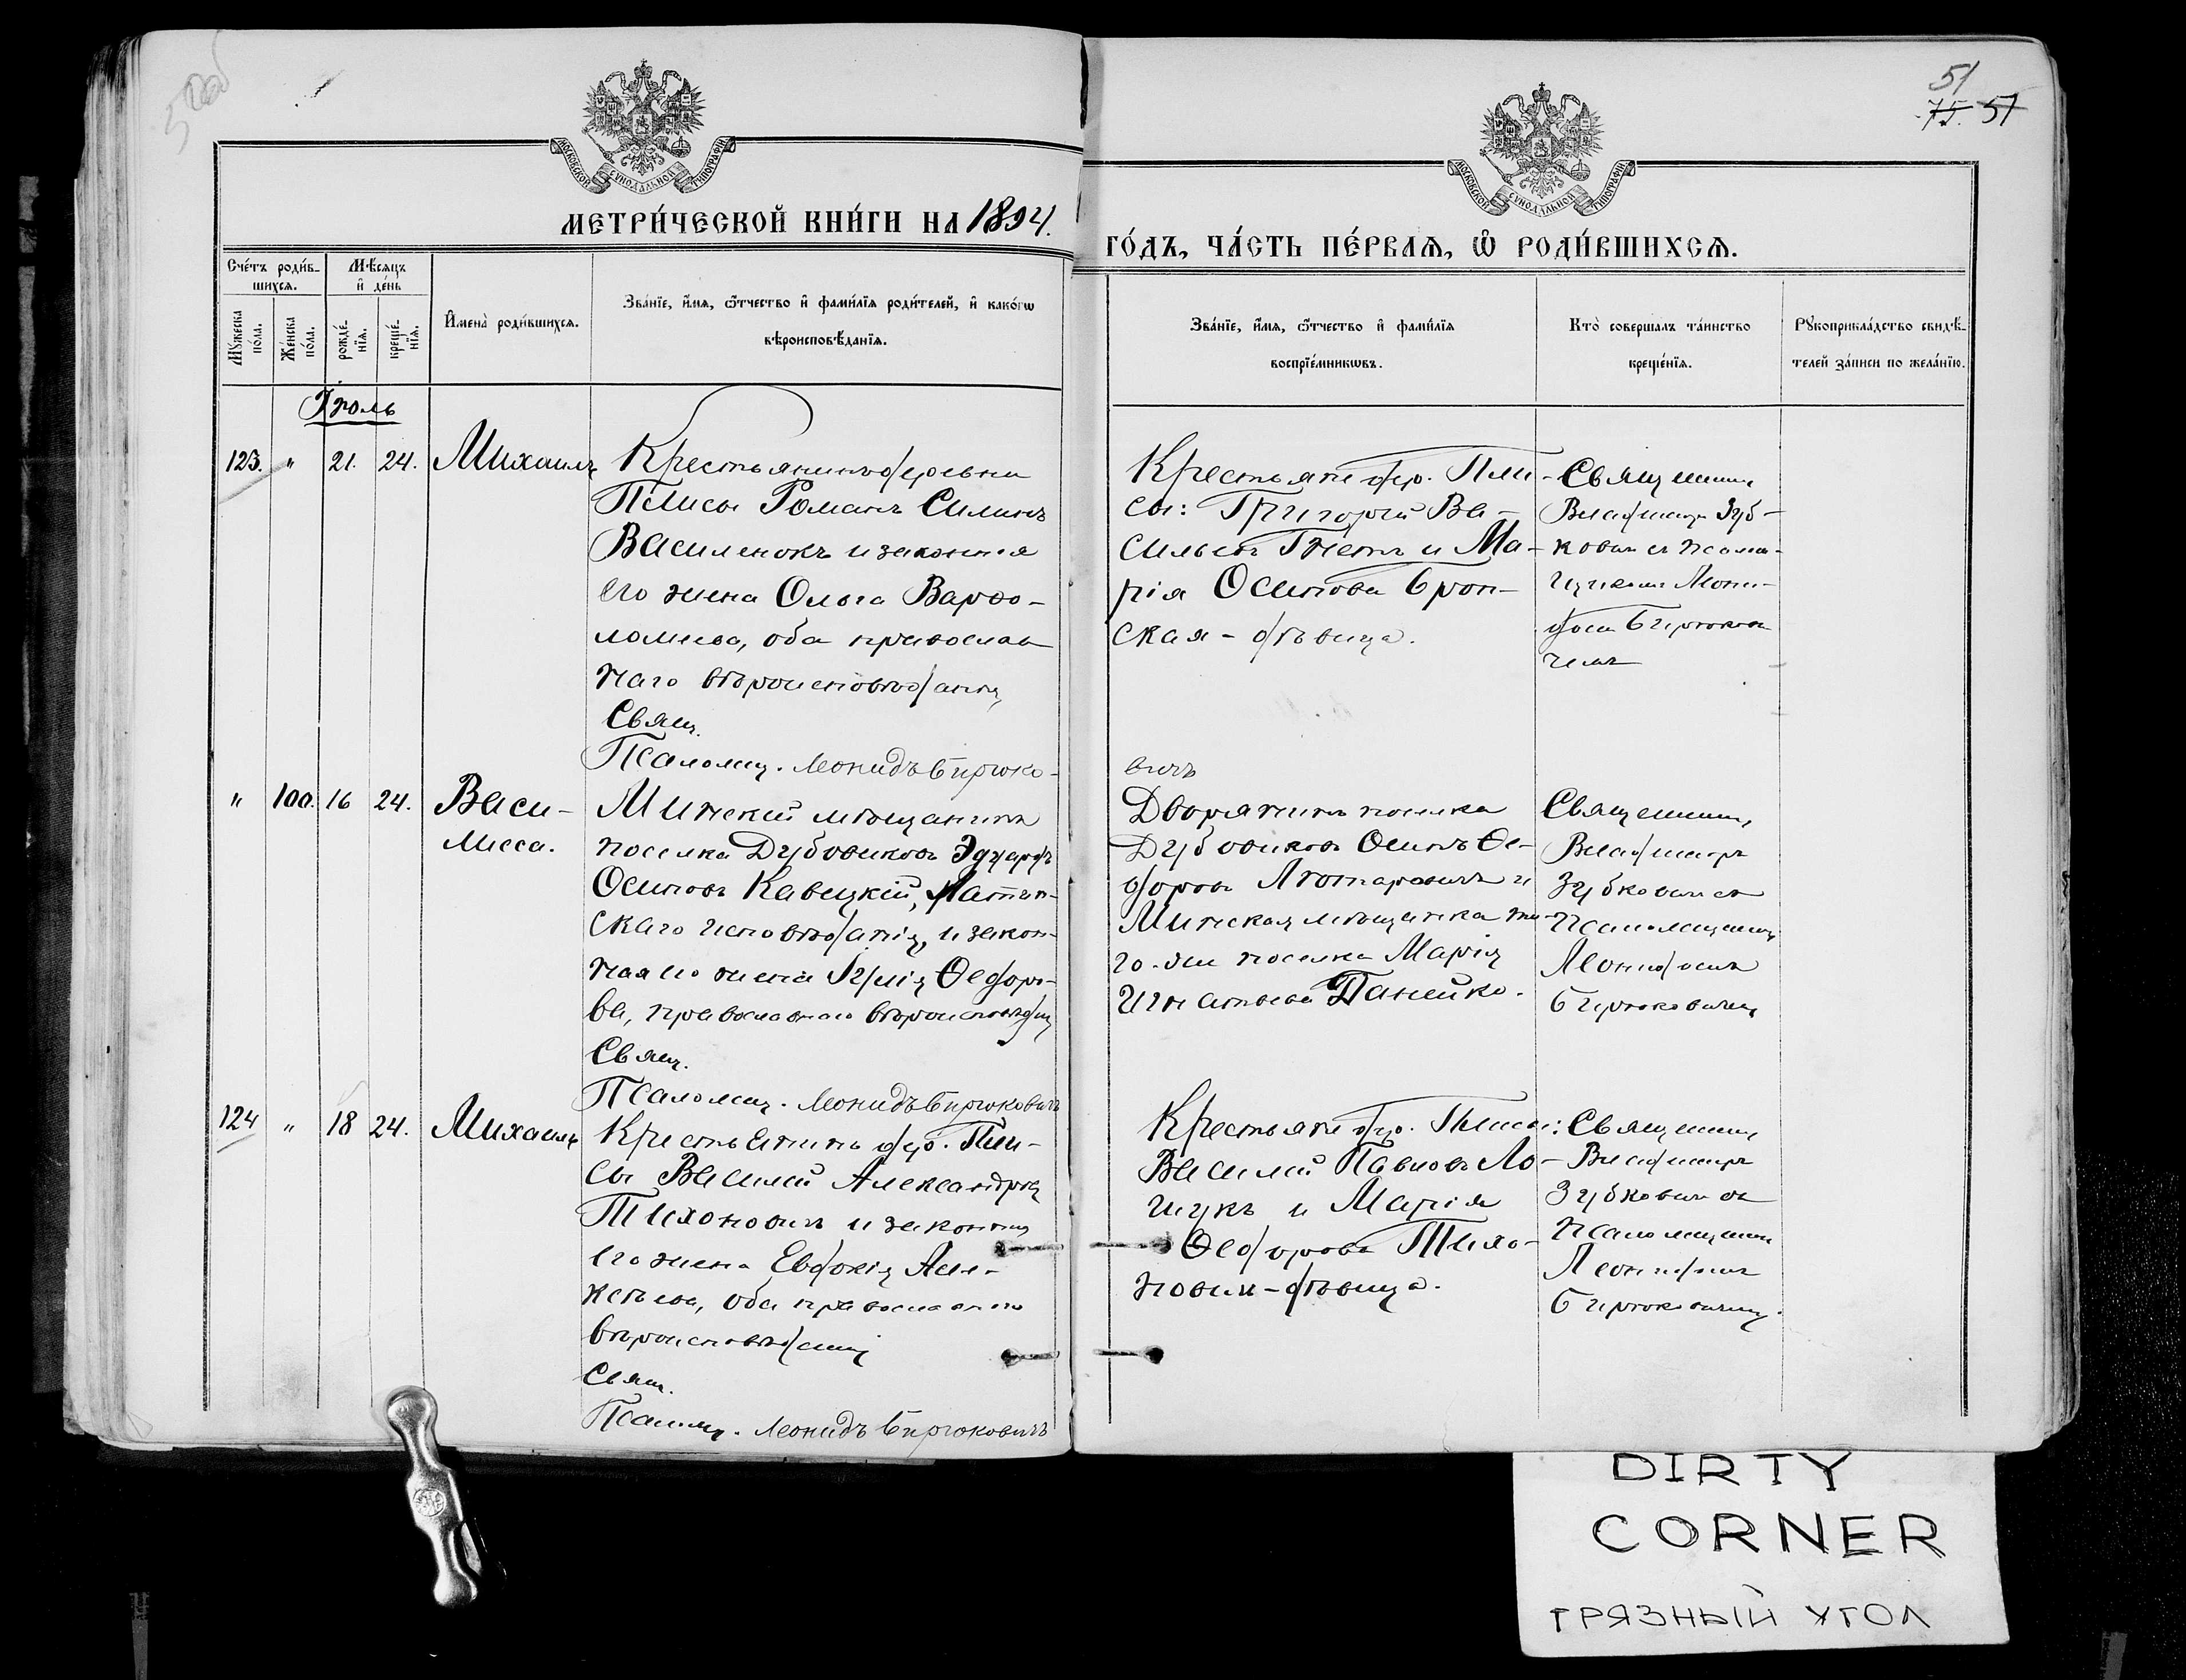 51
75. 51
МОСКОВСКОЙ СѴНОДАЛЬНОЙ ТИПОГРАФІИ
МОСКОВСКОЙ СѴНОДАЛЬНОЙ ТИПОГРАФІИ
МЕТРИ́ЧЕСКОЙ КНИ́ГИ НА 1894.
ГО́ДЪ, ЧА́СТЬ ПЕ́РВАЯ, Ѡ РОДИ́ВШИХСЯ.
Сче́тъ роди́в-
шихся.
Мѣ́сяцъ
и де́нь
Му́жеска по́ла.
Же́нска по́ла.
рожде́-
нїя.
креще́-
нїя.
Имена̀ роди́вшихся.
Зва́нїе, и́мя, ѻ́тчество и фами́лїя роди́телей, и како́гѡ
вѣроисповѣ́данїя.
Зва́нїе, и́мя, ѻ́тчество и фами́лїя
воспрїе́мникѡвъ.
Кто̀ соверша́лъ та́инство
креще́нїя.
Рꙋкоприкла́дство свидѣ́-
телей за́писи по жела́нїю.
Іюль
123. " 21. 24. Михаилъ
Крестьянинъ деревни
Плисы Романъ Силинъ
Василенокъ и законная
его жена Ольга Варѳо-
ломеева, оба православ
наго вѣроисповѣданія
Свящ.
Псаломщ. Леонидъ Бирюко-
Крестьяне дер. Пли-
сы: Григорій Ва-
сильевъ Гнетъ и Ма-
рія Осипова Брон-
ская - дѣвица.
Священникъ
Владиміръ Зуб-
ковичъ съ псалом-
щикомъ Леони-
домъ Бирюкови
чемъ
вичъ
" 100. 16 24. Васи-
лисса.
Минскій мѣщанинъ
поселка Дубовиковъ Эдуардъ
Осиповъ Кавецкій, Латин-
скаго исповѣданія, и закон-
ная его жена Юлія Ѳедоро-
ва, православнаго вѣроисповѣданія
Свящ.
Псаломщ. Леонидъ Бирюковичъ
Дворянинъ поселка
Дубовиковъ Осипъ Ѳе-
доровъ и
Минская мѣщанка то-
го-же поселка Марія
Игнатьева Панейко.
Священникъ
Владиміръ
Зубковичъ съ
псаломщикомъ
Леонидомъ
Бирюковичемъ
124 " 18 24. Михаилъ
Крестьянинъ дер. Пли-
сы Василій Александровъ
Тихоновичъ и законная
его жена Евдокія Але-
ксѣева, оба православнаго
вѣроисповѣданія
Свящ.
Псаломщ. Леонидъ Бирюковичъ
Крестьяне дер. Плисы:
Василій Павловъ Ло-
щукъ и Марія
Ѳедорова Тихо-
новичъ - дѣвица.
Священникъ
Владиміръ
Зубковичъ съ
псаломщикомъ
Леонидомъ
Бирюковичемъ.
DIRTY
CORNER
ГРЯЗНЫЙ УГОЛ